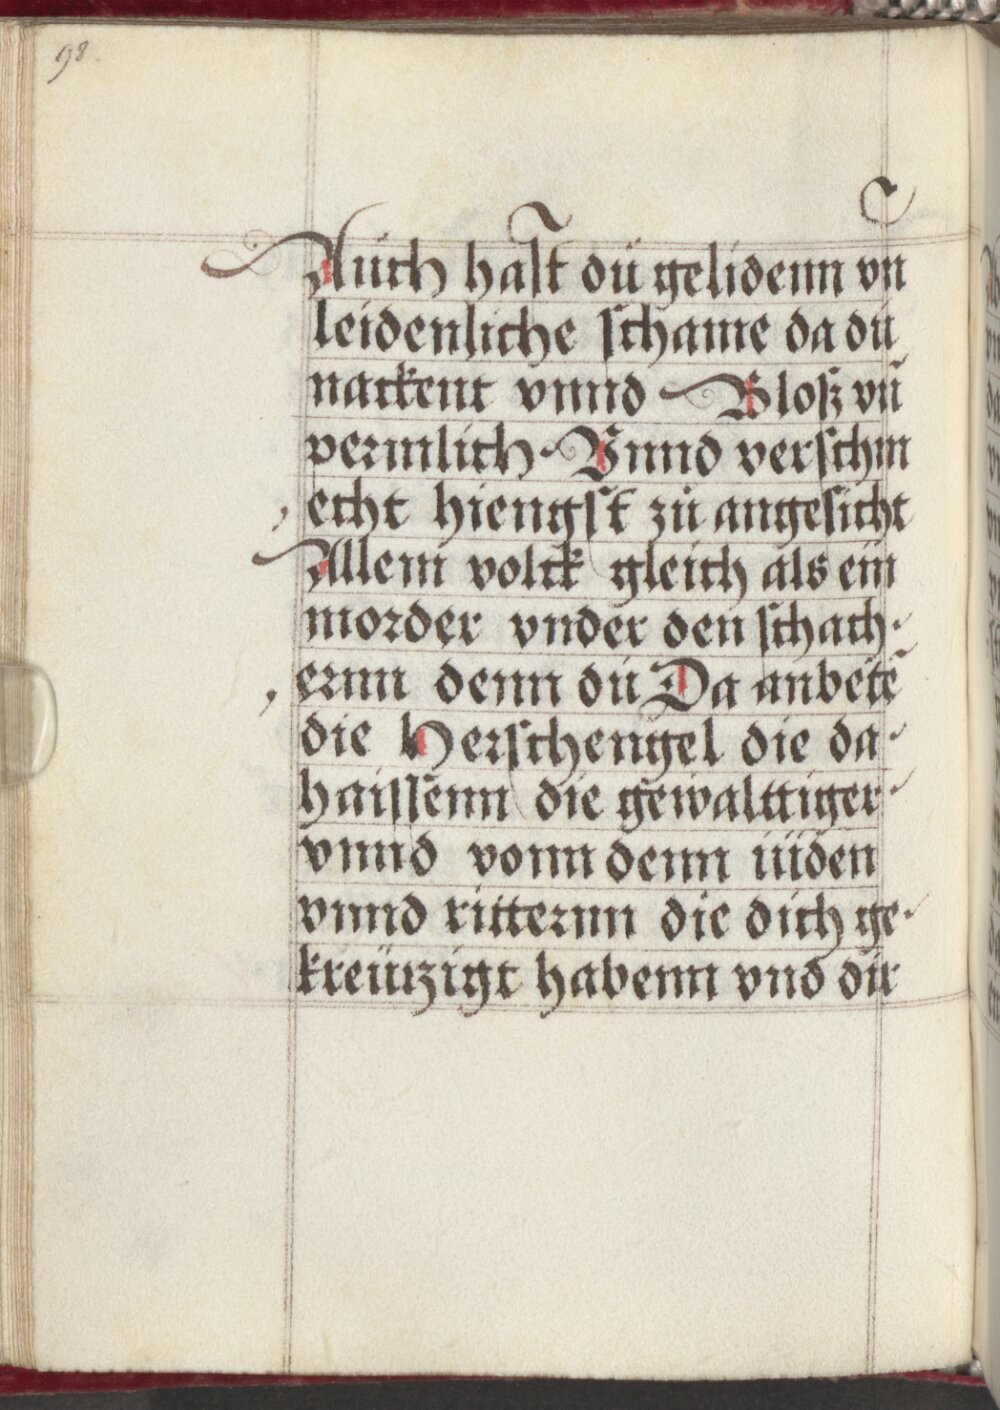 98.
Auch hast dü gelidenn vn
leidenliche schame da dü
nackent vnnd Blosz vn̄
vermlich. Vnnd verschm
echt hiengst zü angesicht
Allem volck gleich als ein
morder vnder den schach-
ernn denn dü Da anbetē
die Herschengel die da
haissenn die gewalttiger
vnnd vonn denn iüden
vnnd ritternn die dich ge-
kreützigt habenn vnd dir